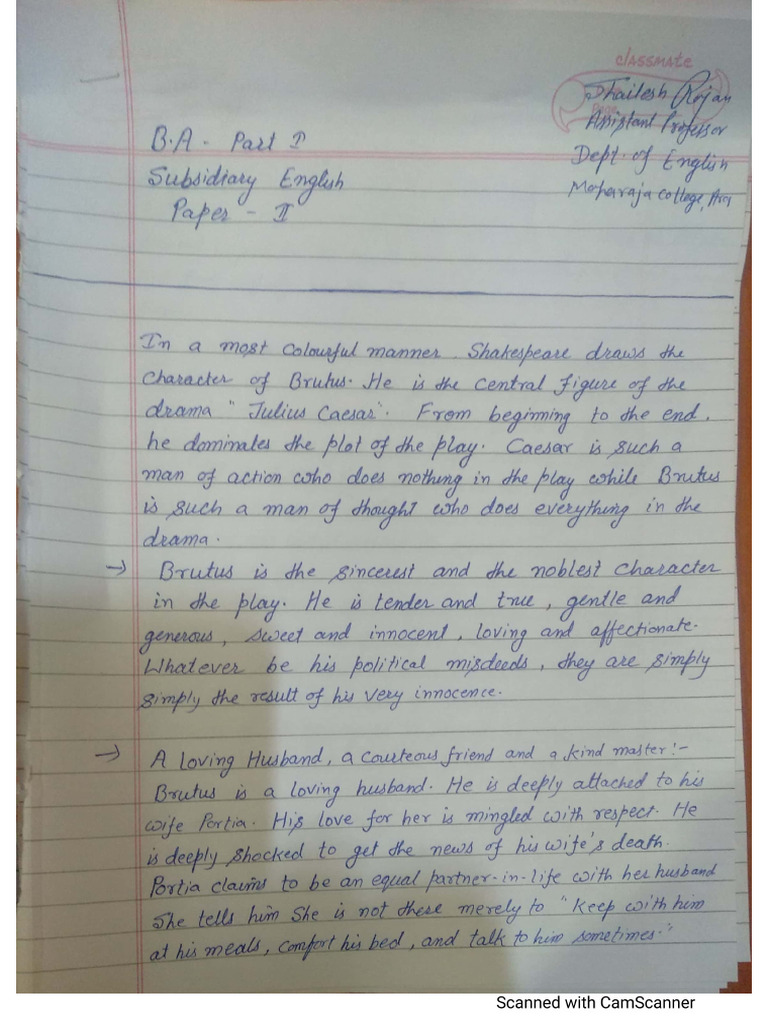 classmate
Shailesh Rajan
Assistant Professor
Dept. of English
Maharaja College, Ara
B.A. Part I
Subsidiary English
Paper - II
In a most colourful manner. Shakespeare draws the
character of Brutus. He is the central figure of the
drama "Julius Caesar". From beginning to the end,
he dominates the plot of the play. Caesar is such a
man of action who does nothing in the play while Brutus
is such a man of thought who does everything in the
drama.
→ Brutus is the sincerest and the noblest character
in the play. He is tender and true, gentle and
generous, sweet and innocent, loving and affectionate.
Whatever be his political misdeeds, they are simply
simply the result of his very innocence.
→ A loving Husband, a courteous friend and a kind master:-
Brutus is a loving husband. He is deeply attached to his
wife Portia. His love for her is mingled with respect. He
is deeply shocked to get the news of his wife's death.
Portia claims to be an equal partner-in-life with her husband
She tells him She is not there merely to "Keep with him
at his meals, comfort his bed, and talk to him sometimes."
Scanned with CamScanner